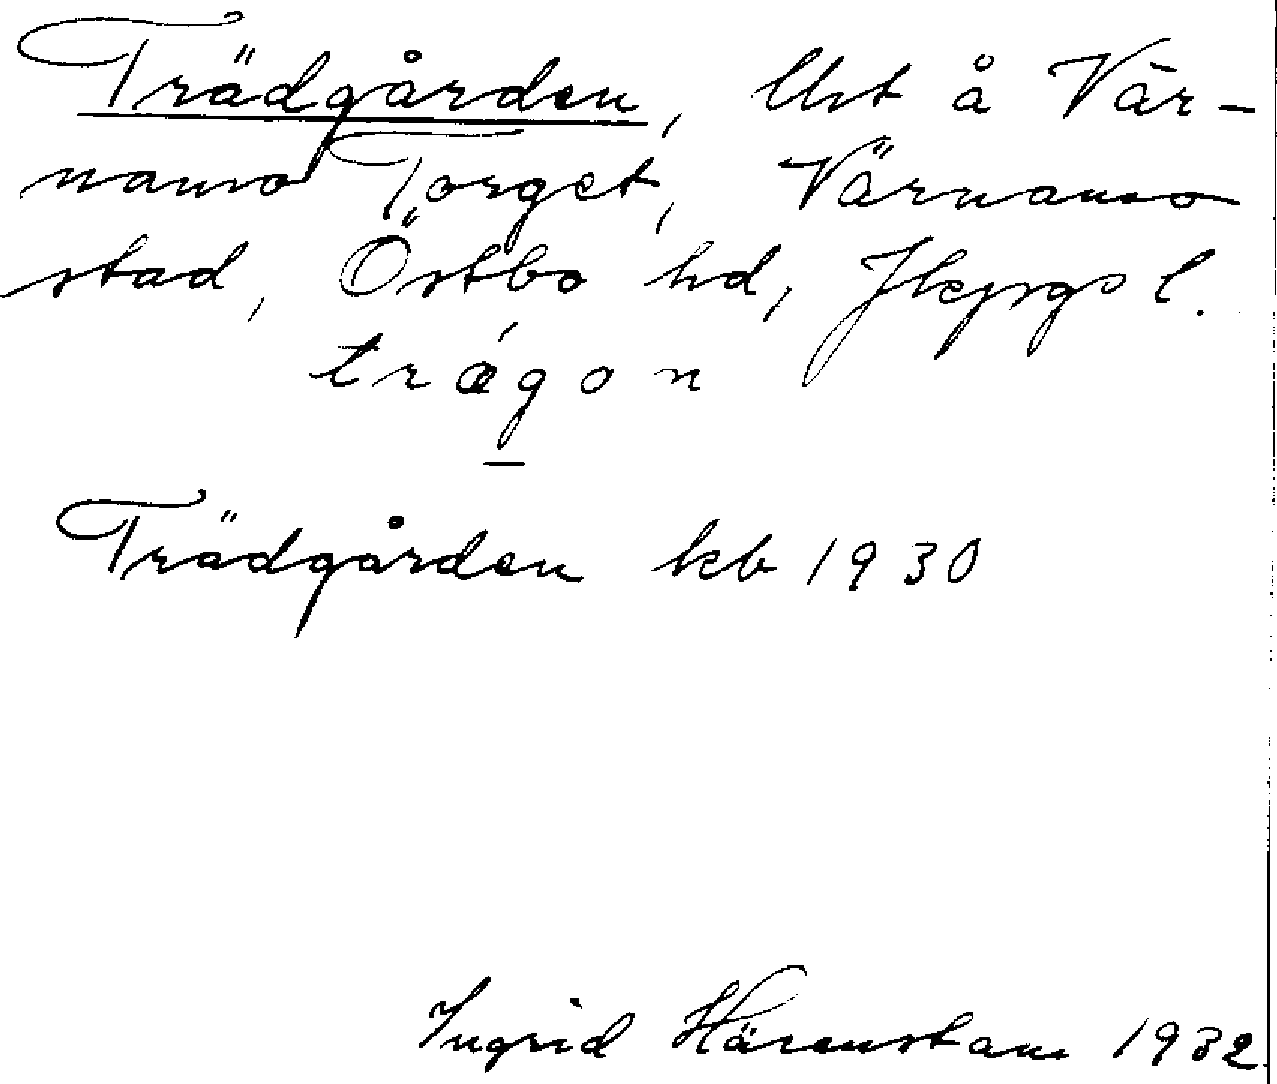 Trädgården, lht å Vär-
namo Torget, Värnamo
stad, Östbo hd, Jkpgs l.
trǽgon
Trädgården kb 1930
Ingrid Härenstam 1932